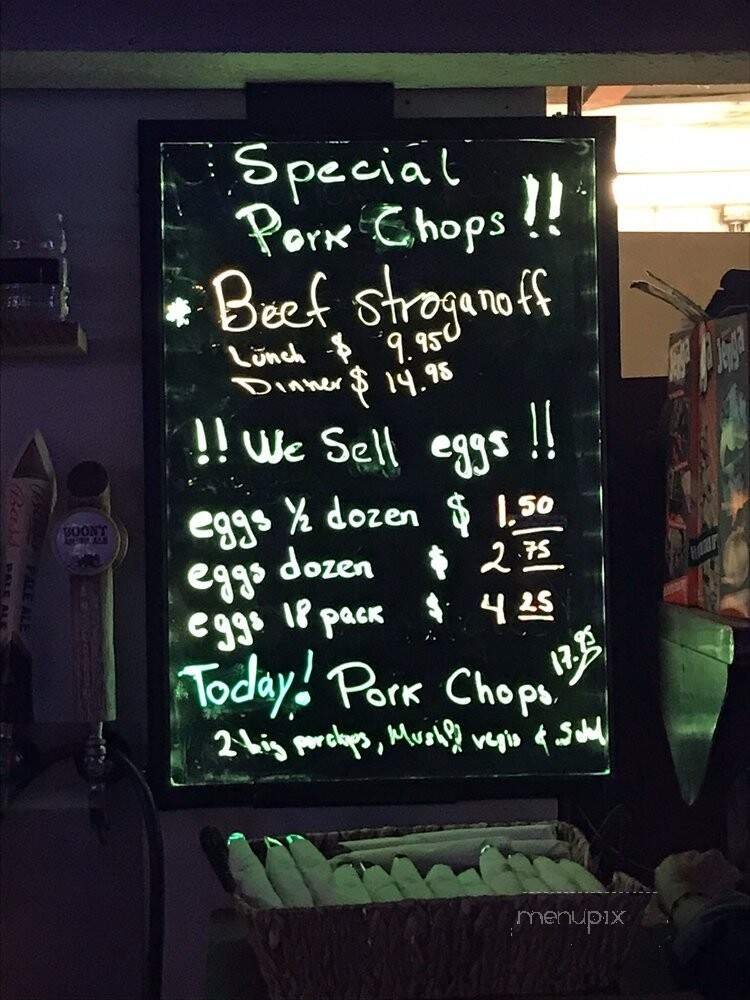 Special
Pork Chops !!
* Beef stroganoff
Lunch $ 9.95
Dinner $ 14.95
!! We Sell eggs !!
eggs ½ dozen $ 1.50
eggs dozen $ 2.75
eggs 18 pack $ 4.25
Today! Pork Chops 17.95
2 big porchops, Mush P? vegis & Salad
BOONT
AMBER ALE
PALE ALE
Jenga
menupix